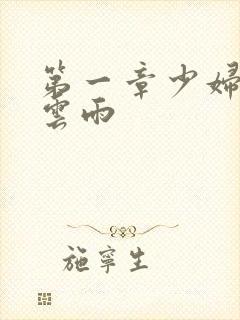 第一章少婦
雲雨
施寧生